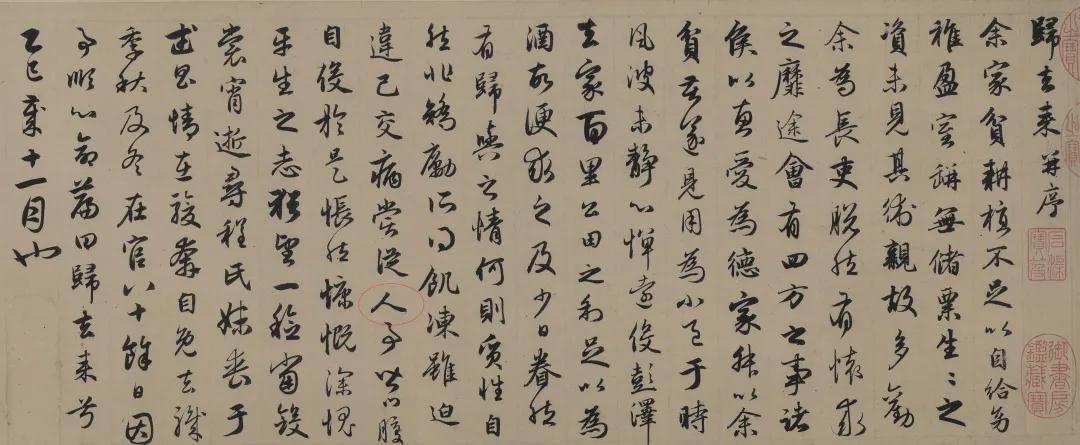 歸去來并序
余家貧耕植不足以自給幼
稚盈室缾無儲粟生〻之
資未見其術親故多勸
余為長吏脫然有懷求
之靡途會有四方之事諸
侯以惠愛為德家叔以余
貧苦遂見用為小邑于時
風波未靜心憚遠役彭澤
去家百里公田之利足以為
酒故便求之及少日眷然
有歸與之情何則質性自
然非矯勵所得飢凍雖迫
違己交病嘗從人事皆口腹
自役於是悵然慷慨深愧
平生之志猶望一稔當斂
裳宵逝尋程氏妹喪于
武昌情在駿奔自免去職
季秋及冬在官八十餘日因
事順心命篇曰歸去來兮
乙巳歲十一月也
石渠
寶笈
御書房
鑑藏寶